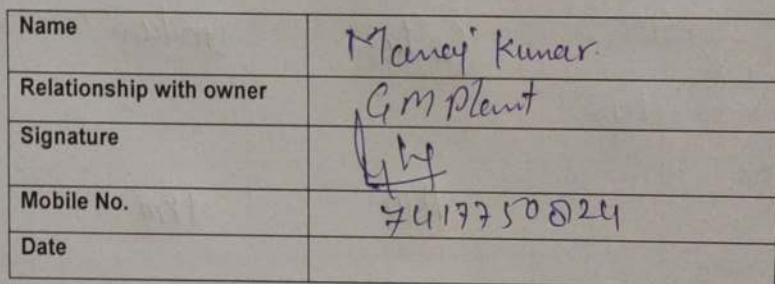 Name Manoj Kumar.
Relationship with owner GM Plant
Signature
Mobile No. 7417750824
Date